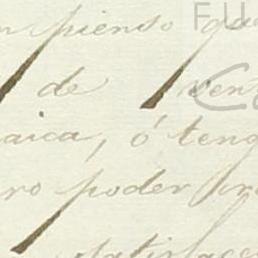 pienso que
de ven
aica, ó teng
ro poder
satisface